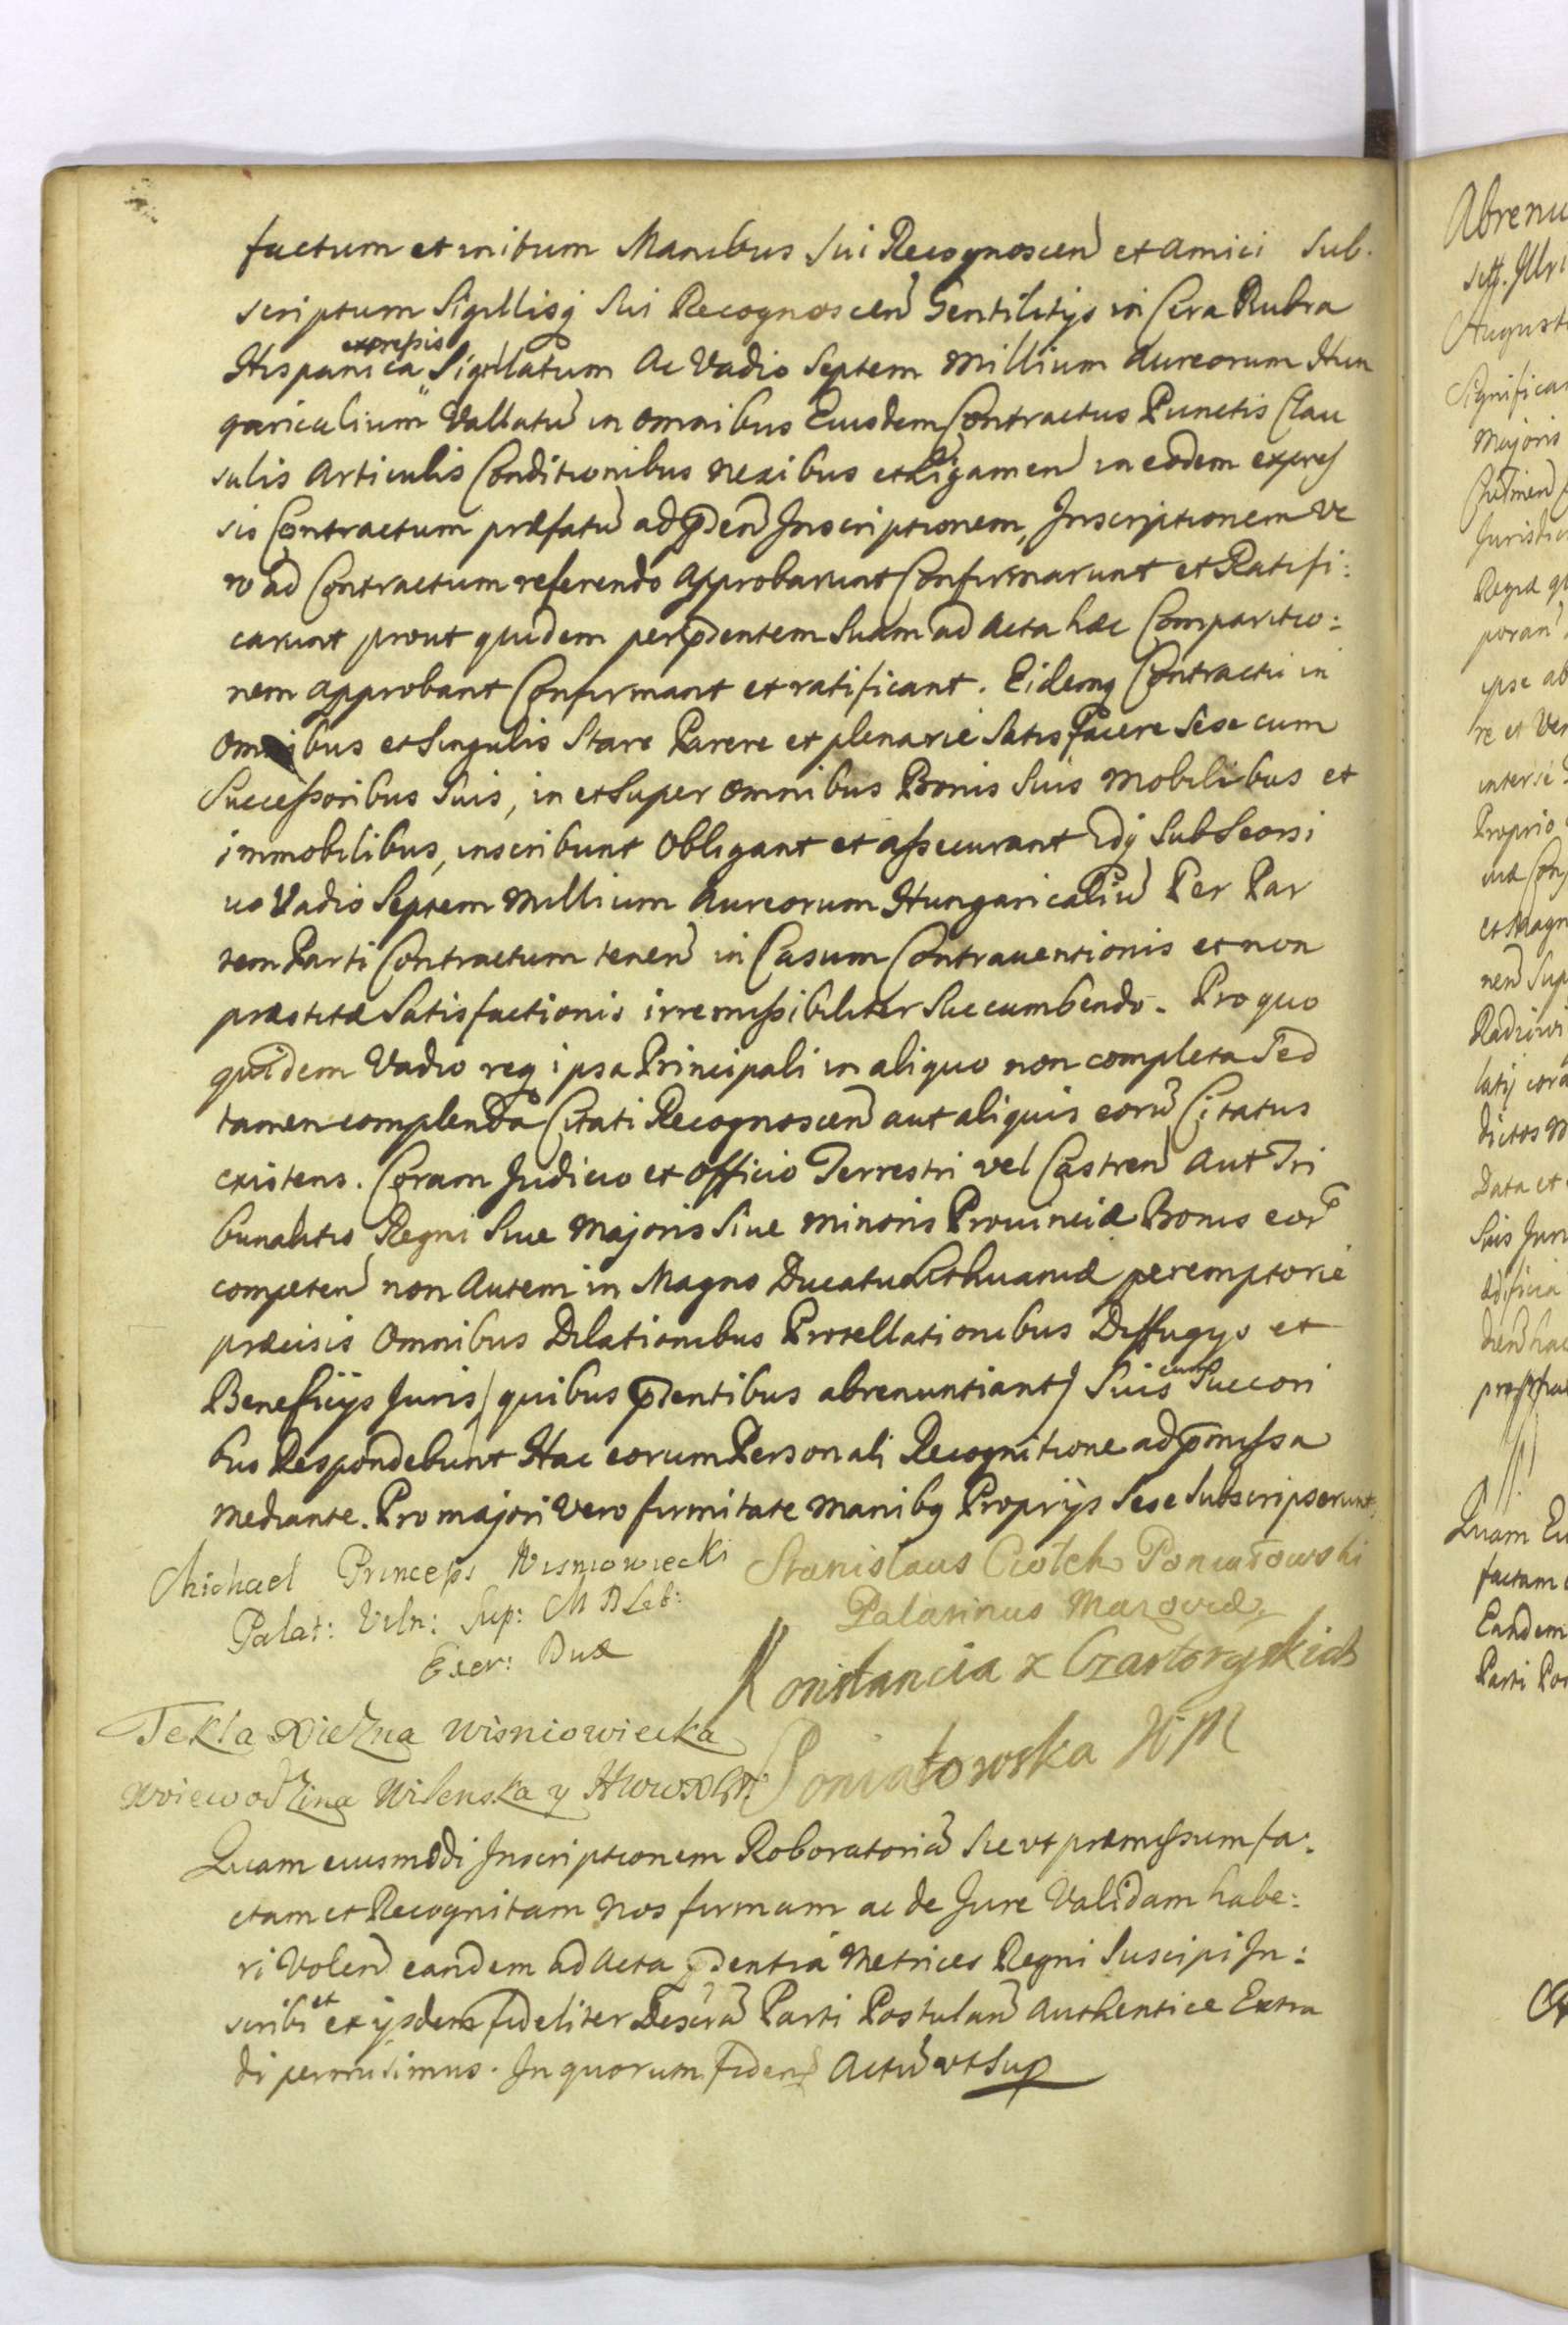 factum et initum Manibus Sui Recognoscen et Amici Sub.
scriptum Sigillisq Sui Recognoscen Gentilitys in Cera Rubra
Hispanica expressis Sigillatum Ac Vadio Septem Millium Aureorum Hun
garicalium Vallatu in omnibus Eiusdem Contractus Punctis Clau
sulis Articulis Conditionibus Nexibus et Ligamen in eodem expres
sis Contractum præfatu ad pden Inscriptionem, Inscriptionem ve
ro ad Contractum referendo Approbarunt Confirmarunt et Ratifi:
carunt prout quidem per pdentem Suam ad Acta hæc Comparitio:
nem approbant Confirmant et ratificant. Eidemq Contractui in
omnibus et Singulis Stare Parere et plenarie Satisfacere Sese cum
Successoribus Suis, in et Super omnibus Bonis Suis Mobilibus et
immobilibus, inscribunt Obligant et assecurant Idq Sub Seorsi
uo Vadio Septem Millium Aureorum Hungaricaliu Per Par
tem Parti Contractum tenen in Casum Contrauentionis et non
præstitæ Satisfactionis irremissibiliter Succumbendo. Pro quo
quidem Vadio req ipsa Principali in aliquo non completa Sed
tamen complenda Citati Recognoscen aut aliquis eoru Citatus
existens. Coram Judicio et Officio Terrestri vel Castren Aut Tri
bunalitio Regni Siue Majoris Siue Minoris Prouinciæ Bonis eor
competen non Autem in Magno Ducatu Lithuaniæ peremptorie
præcisis Omnibus Dilationibus Procellationibus Diffugys et
Beneficijs Juris / quibus pdentibus abrenuntiant / Suis cum Succori
bus Respondebunt Hac eorum Personali Recognitione ad pmissa
Mediante. Pro majori Vero firmitate Manibq Proprijs Sese Subscripserunt
Michael Princeps Wisniowiecki
Palat: Viln: Sup: M D Lit:
Exer: Dux
Stanislaus Ciołek Poniatowski
Palatinus Mazoviæ
Konstancia z Czartoryskich
Poniatowska W M
Tekla Xiezna Wisniowiecka
Woiewodzina Wilenska y H W W X L
Quam eiusmodi Inscriptionem Roboratoria Sic ut præmissum fa:
ctam et Recognitam Nos firmam ac de Jure Validam habe:
ri Volen eandem ad Acta pdentia Metrices Regni Suscipi In:
scribi et ex ijsdem fideliter Parti Postulan Authentice Extra
di permisimus. In quorum fidem Actu ut Sup